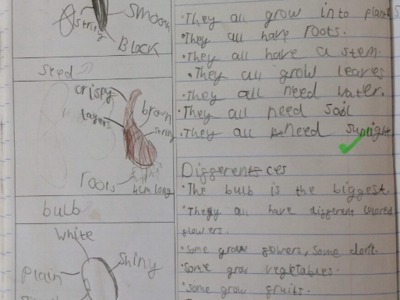 smooth
string
Black
seed
crispy
brown
layers
shiny
roots
4cm long
bulb
white
shiny
plain
• They all grow into plants
• They all have roots.
• They all have a stem.
• They all grow leaves
• They all need water.
• They all need soil
• They all need sunlight
Differentces
• The bulb is the biggest.
• They all have different colored
flowers.
• Some grow flowers, some dont.
• Some grow vegetables.
• Some grow fruits.